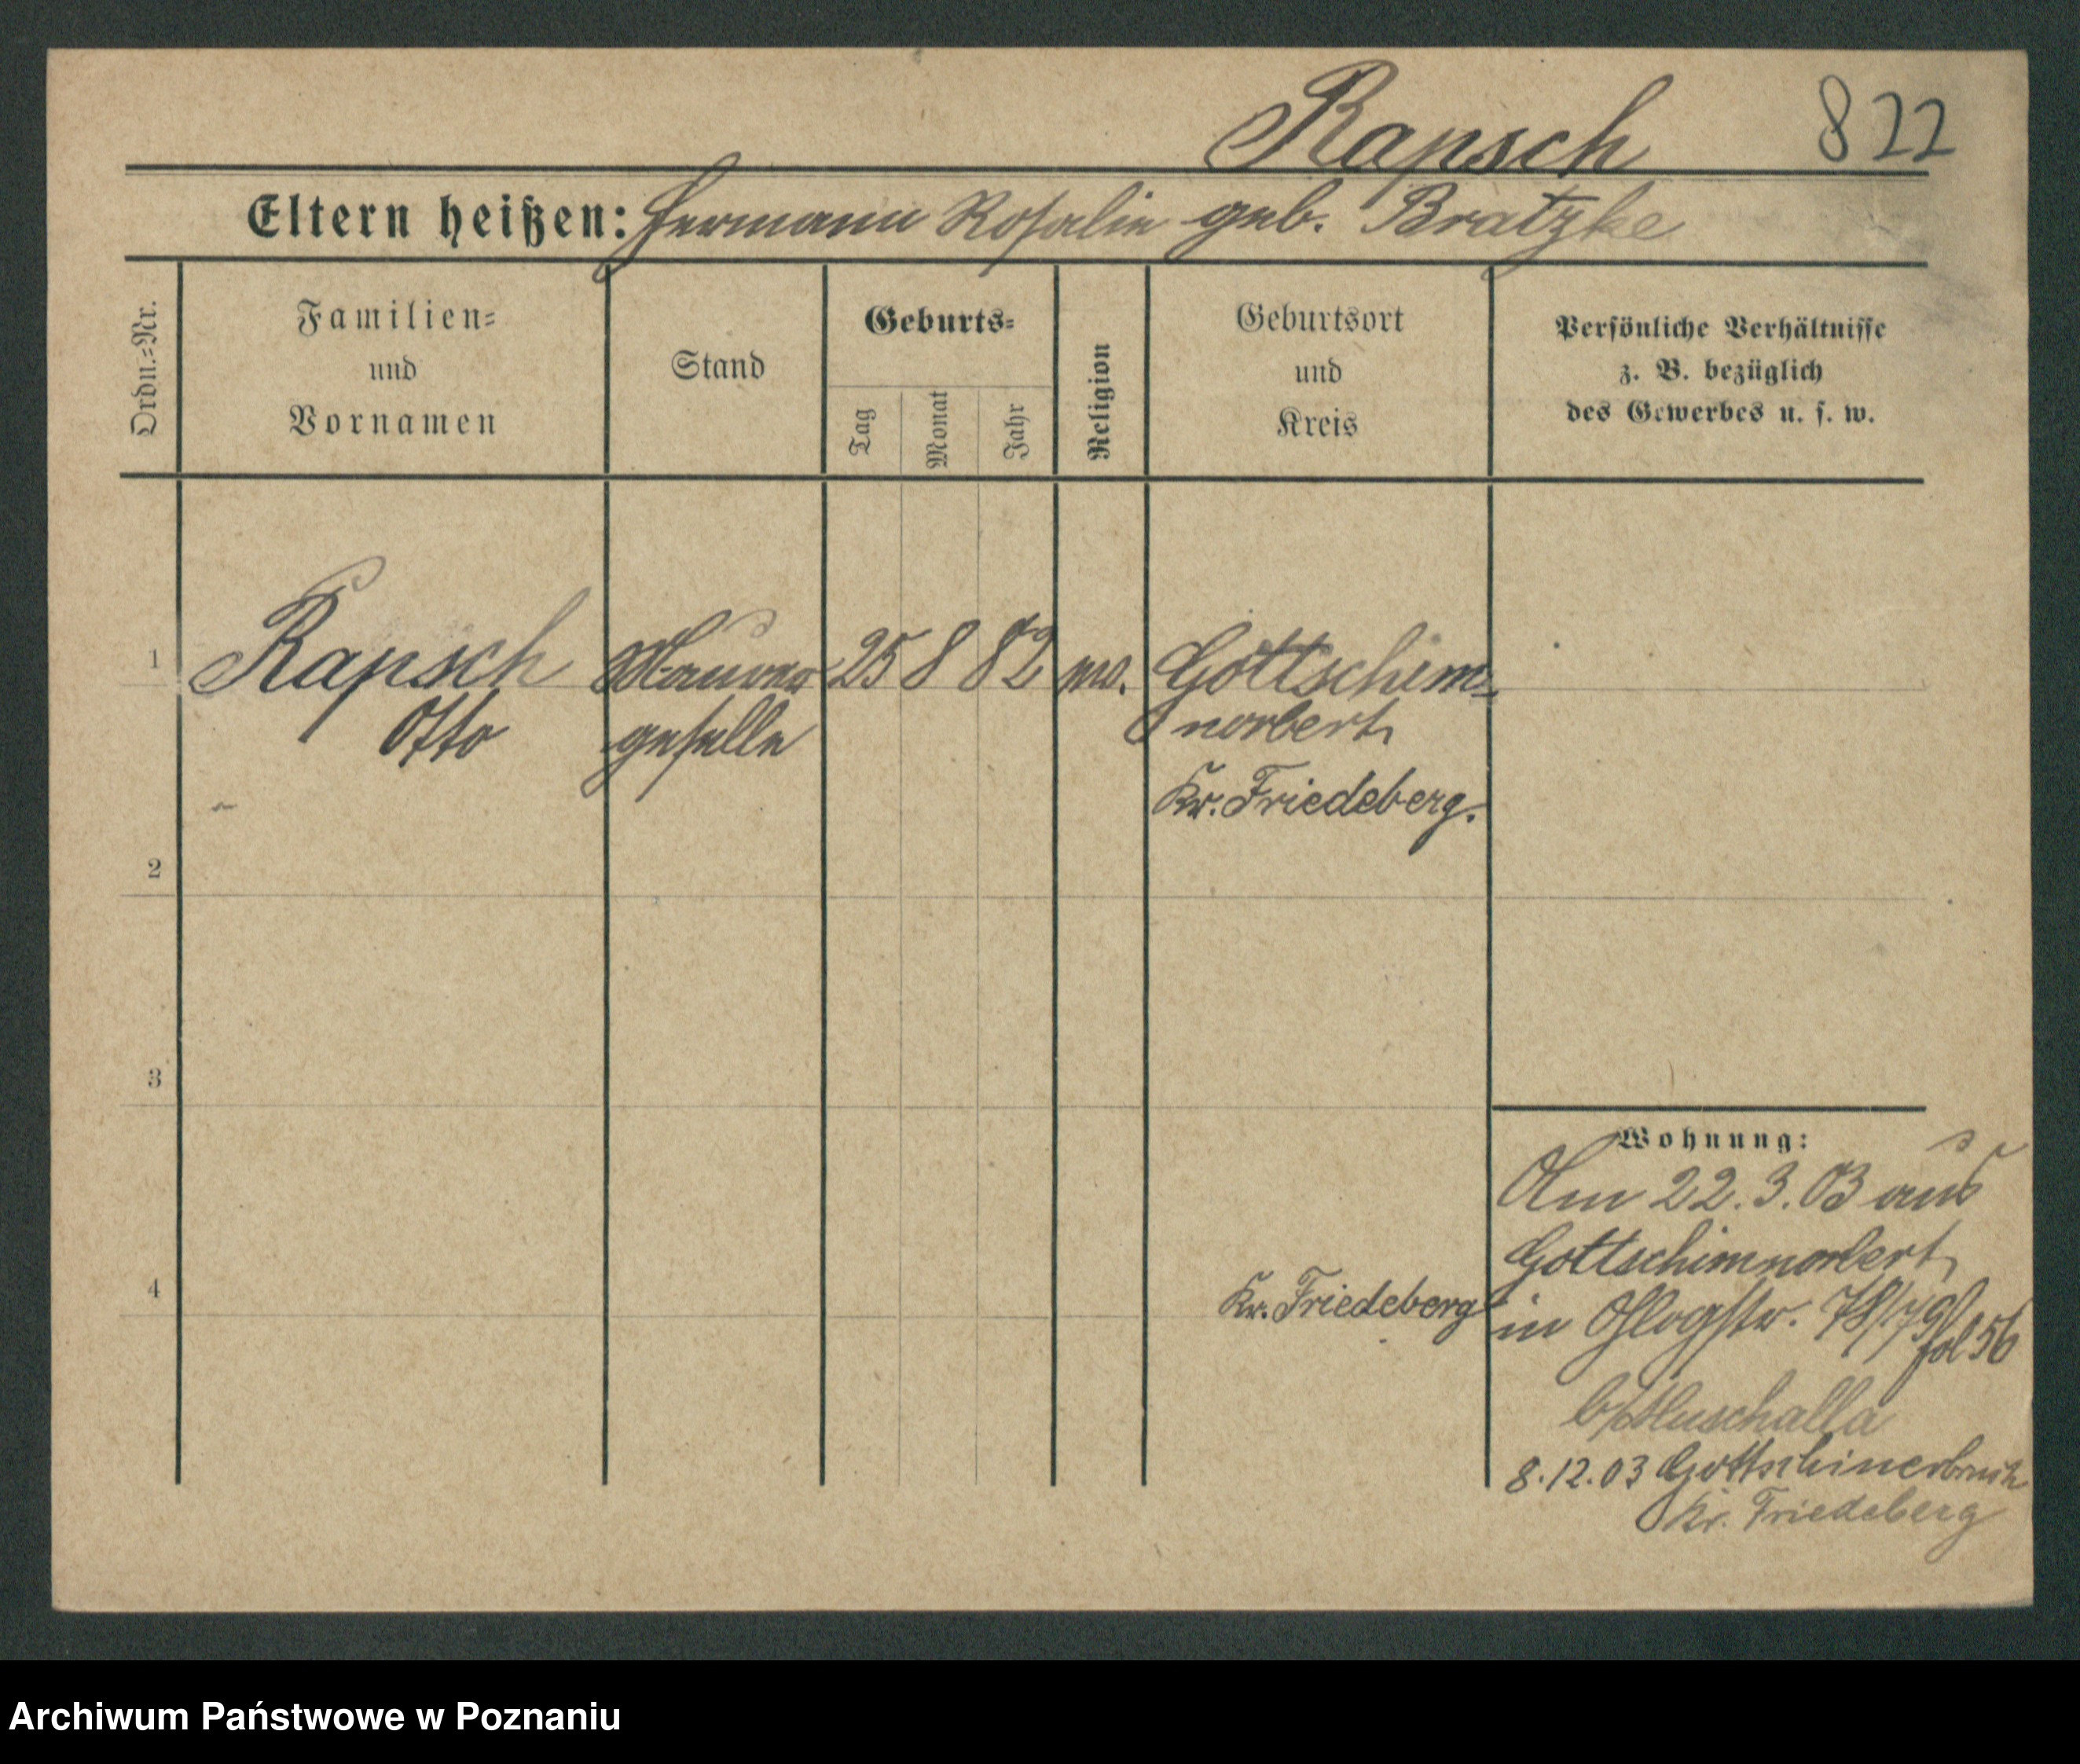 Rapsch 822
Eltern heißen: Hermann Rosalie geb. Bratzke
Ordn.=Nr.
Familien=
und
Vornamen
Stand
Geburts=
Tag
Monat
Jahr
Religion
Geburtsort
und
Kreis
Persönliche Verhältnisse
z. B. bezüglich
des Gewerbes u. s. w.
1 Rapsch Maurer 25 8 82 ev. Gottschim=
Otto geselle norbert,
Kr. Friedeberg.
2
3
Wohnung:
Am 22.3.03 aus
Gottschimnorbert,
4 Kr. Friedeberg in Glogstr. 78/79 fol 56
b/Muschalla
8.12.03 Gottschimerbruch
Kr. Friedeberg
Archiwum Państwowe w Poznaniu